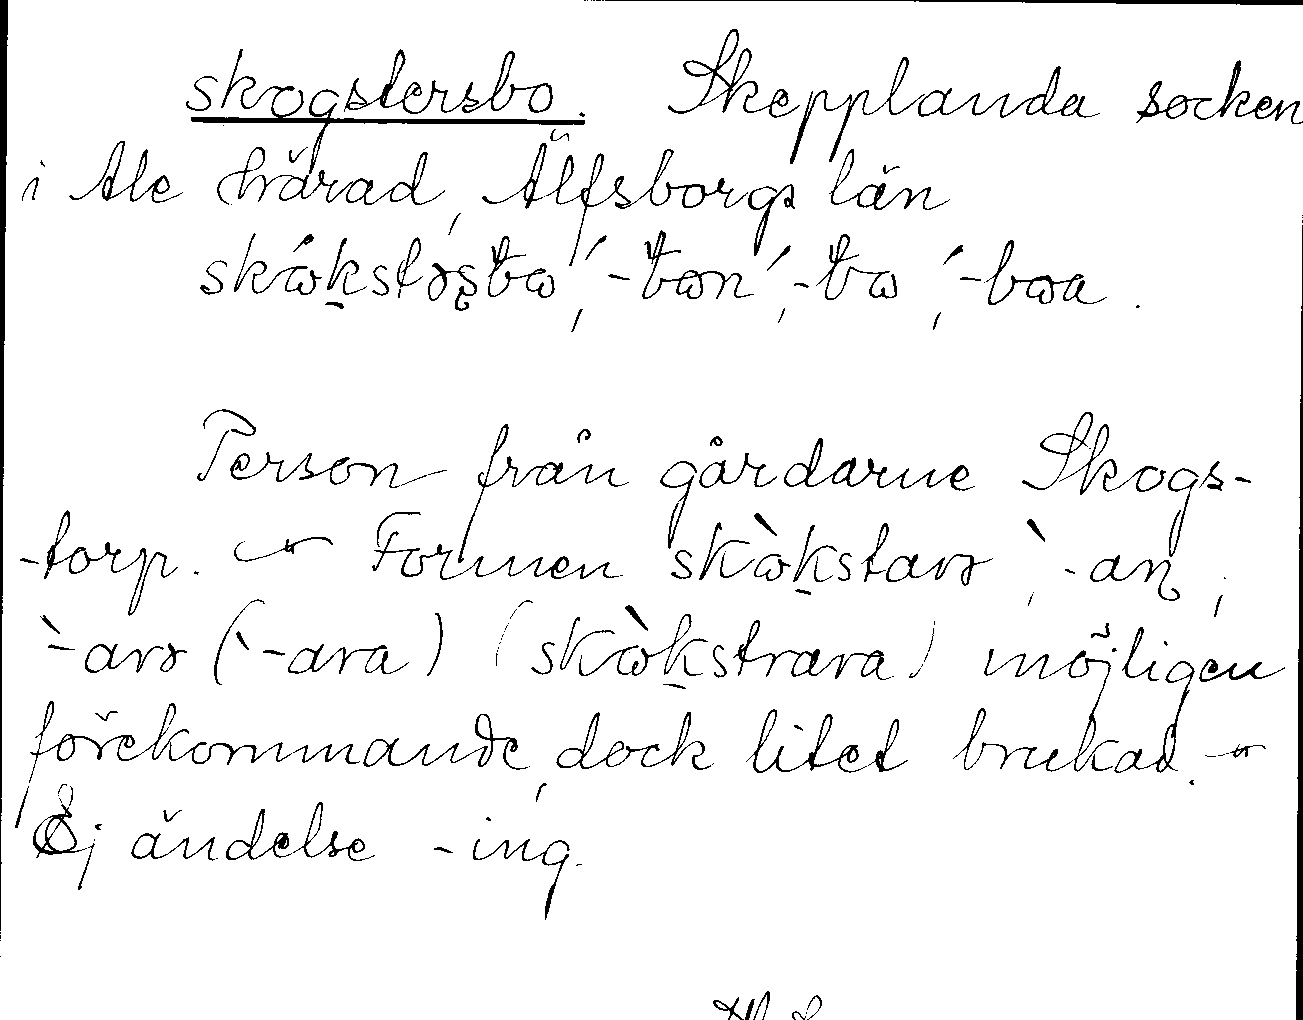 skogstersbo. Skepplanda socken
i Ale härad, Älfsborgs län
skώk̠stɤsbω ́, -bωn ́, -bω ́, -bωa.
Person från gårdarne Skogs-
-torp. — Formen skὼk̠starɤ `, -an,
`-arɤ (`-ara) (skὼk̠strara) möjligen
förekommande, dock litet brukad. —
Ej ändelse -ing.